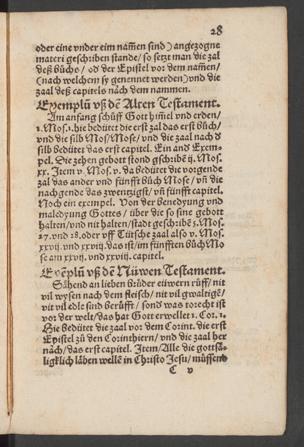 28
oder eine vnder eim nam̃en sind) angezogne
materi geschriben stande/ so setzt man die zal
deß bůchs/ od der Epistel vor dem nam̃en/
(nach welchem sy genennet werden) vnd die
zaal deß capitels nach dem nammen.
Exemplũ vß dẽ Alten Testament.
Am anfang schůff Gott him̃el vnd erden/
1. Mos. 1. hie bedütet die erst zal das erst bůch/
vnd die silb Mos/ Mose/ vnd die zaal nach d
silb bedütet das erst capitel. Ein and Exem-
pel. Die zehen gebott stond gschribẽ ij. Mos.
xx. Item v. Mos. v. da bedütet die vorgende
zal das ander vnd fünfft bůch Mose/ vñ die
nachgende das zwentzigst/ vñ fünfft capitel.
Noch ein exempel. Von der benedyung vnd
maledyung Gottes/ über die so sine gebott
halten/ vnd nit halten/ stadt geschribẽ 5. Mos.
27. vnd 28. oder vff Tütsche zaal also v. Mos.
xxvij. vnd xxviij. das ist/ im fünfften bůch Mo
se am xxvij. vnd xxviij. capitel.
Exẽplũ vß dẽ Nüwen Testament.
Sähend an lieben Brüder eüwern rüff/ nit
vil wysen nach dem fleisch/ nit vil gwaltige/
nit vil edle sind berüfft/ sond was torecht ist
vor der welt/ das hat Gott erwellet 1. Cor. 1.
Hie bedütet die zaal vor dem Corint. die erst
Epistel zů den Corinthiern/ vnd die zaal her
nach/ das erst capitel. Item/ Alle die gottsä-
ligklich läben wellẽ in Christo Jesu/ müssend
C v